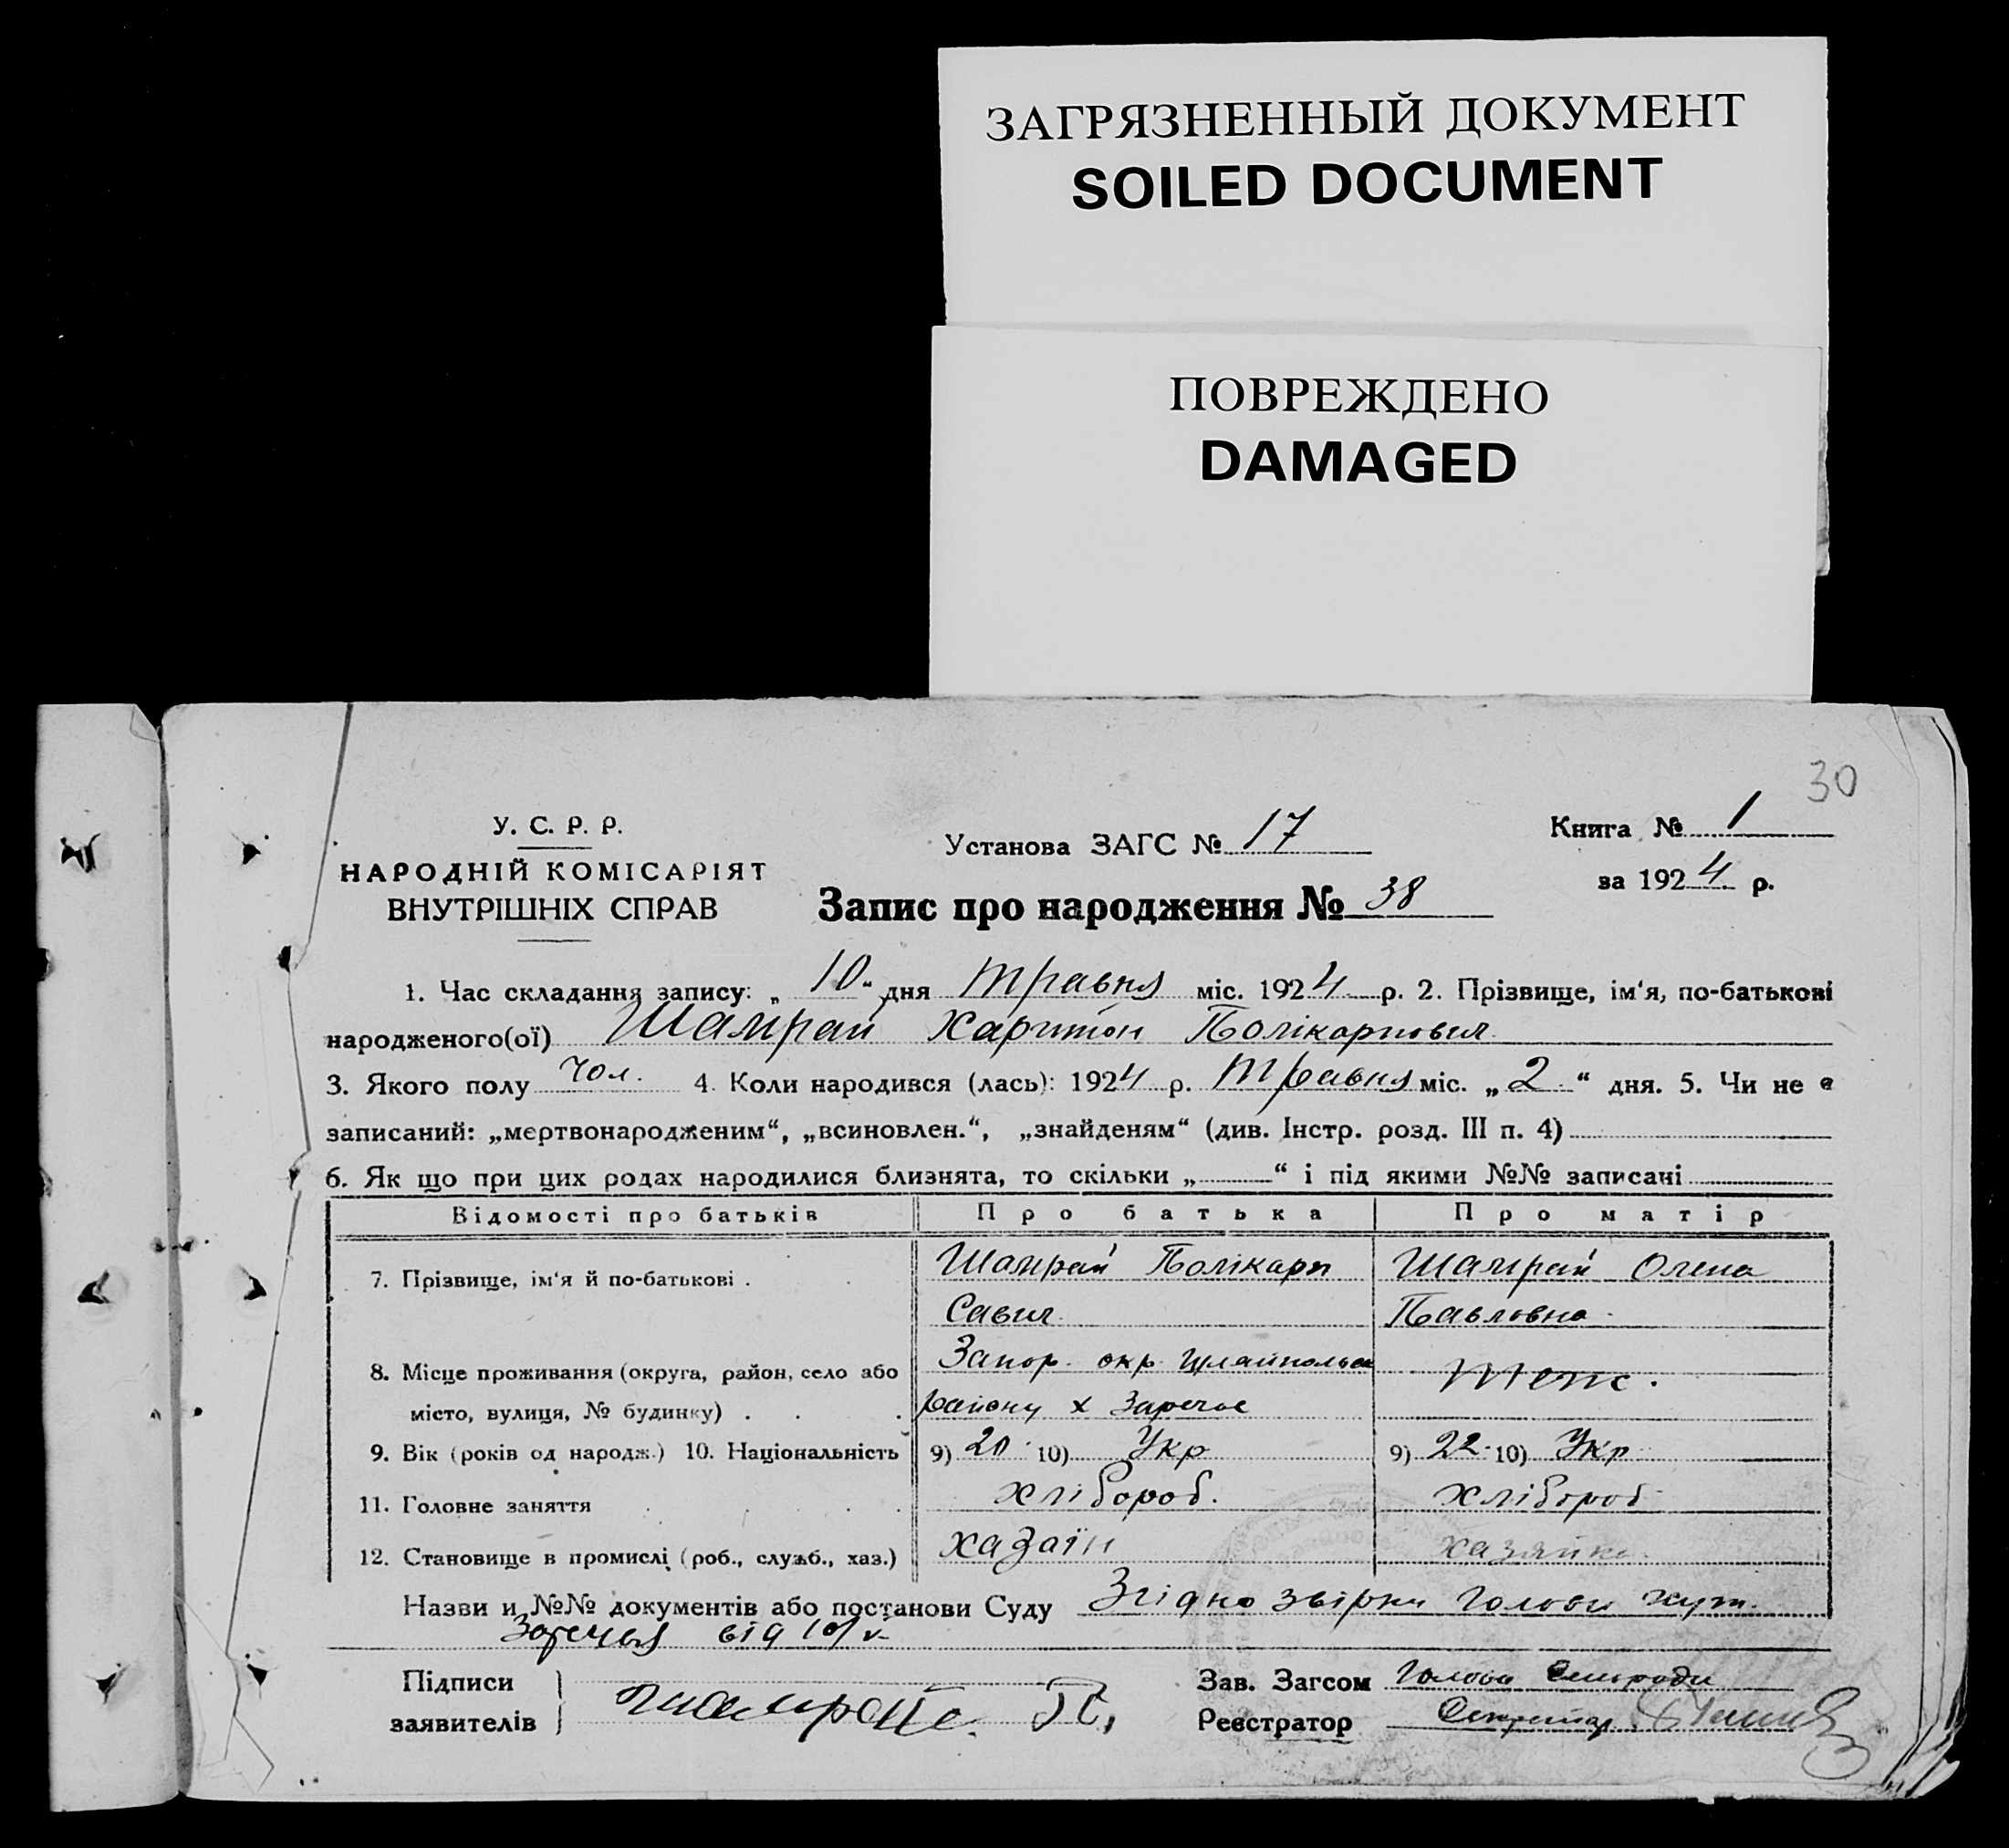 ЗАГРЯЗНЕННЫЙ ДОКУМЕНТ
SOILED DOCUMENT
ПОВРЕЖДЕНО
DAMAGED
30
У. С. Р. Р.
НАРОДНІЙ КОМІСАРІЯТ
ВНУТРІШНІХ СПРАВ
Установа ЗАГС № 17
Книга № 1
за 1924 р.
Запис про народження № 38
1. Час складання запису: „ 10 " дня травня міс. 1924 р. 2. Прізвище, ім'я, по-батькові
народженого(ої) Шамрай Харитон Полікарпович
3. Якого полу чол. 4. Коли народився (лась): 1924 р. Травня міс. „ 2 " дня. 5. Чи не є
записаний: „мертвонародженим", „всиновлен.", „знайденям" (див. Інстр. розд. III п. 4)
6. Як що при цих родах народилися близнята, то скільки „ " і під якими №№ записані
Відомості про батьків Про батька Про матір
7. Прізвище, ім'я й по-батькові . Шамрай Полікарп Шамрай Олена
Савич Павловна
8. Місце проживання (округа, район, село або Запор. окр. Теж.
місто, вулиця, № будинку) . . . району х Заречьє
9. Вік (років од народж.) 10. Національність 9) 20 10) Укр 9) 22 10) Укр
11. Головне заняття хлібороб. хлібороб
12. Становище в промислі (роб., служб., хаз.) хазаїн хазяйка
Назви и №№ документів або постанови Суду Згідно звірки Голови хут.
Заречья від 10/V
Підписи
заявителів
Шамрай П.
Зав. Загсом Голова Сельради
Реєстратор Секретар